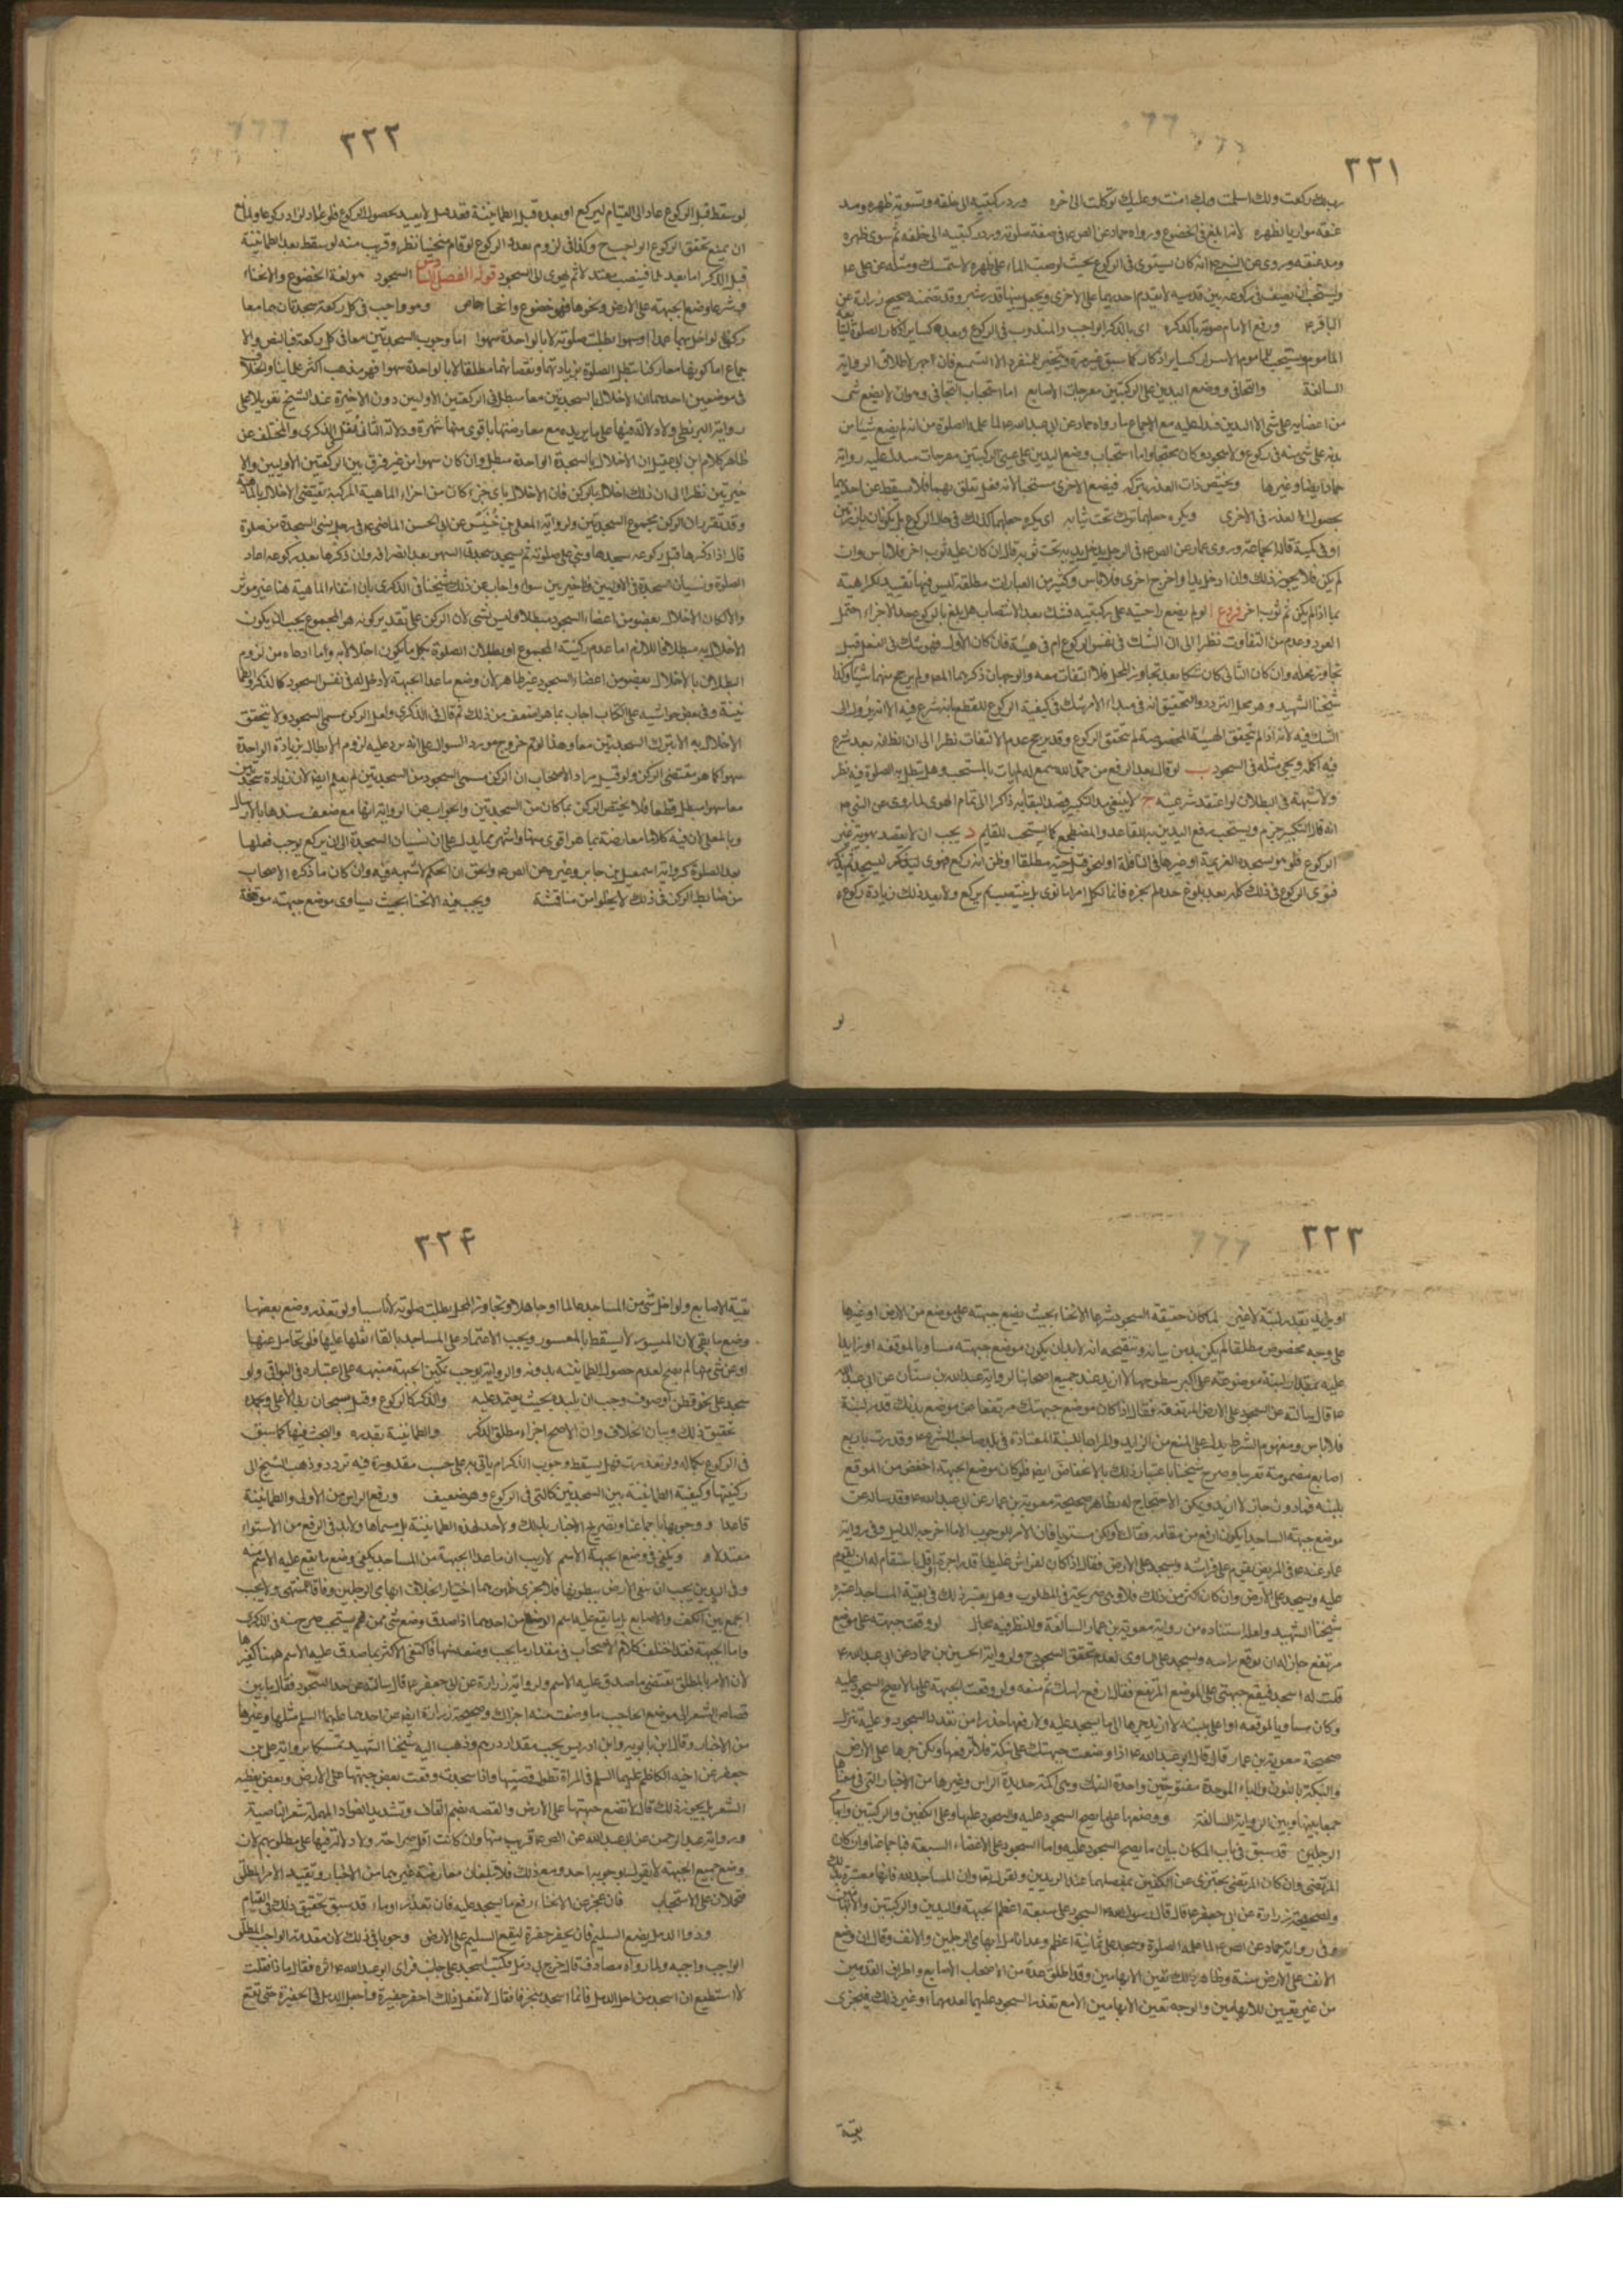 ٣٢١
ربك ركعت ولك اسلمت وبك امنت وعليك توكلت الى اخره ورد ركبتيه الى خلفه وتسوية ظهره ومد
عنقه موازيا لظهره لانه ابلغ في الخضوع ورواه حماد عن الص ع في صفة صلوته ورد ركبتيه الى خلفه ثم سوى ظهره
ومد عنقه وروى عن النبي ص انه كان يستوى في الركوع بحيث لو صب الماء على ظهره لاستمسك ومثله عن علي ع
الباقر ع ورفع الامام صوته بالذكر اى بالذكر الواجب والمندوب في الركوع وبعده كساير اذكار الصلوة
السالفة والتجافي ووضع اليدين على الركبتين مفرجات الاصابع اما استحباب التجافي وهو ان لا يضع شى
من اعضايه على شى الا اليدين فيدل عليه مع الاجماع ما رواه حماد عن ابي عبد الله ع لما علمه الصلوة من انه لم يضع شيئا من
بدنه على شى منه في ركوع ولا سجود وكان متجنحا واما استحباب وضع اليدين على عيني الركبتين مفرجات فيدل عليه رواية
حماد ايضا وغيرها ويختص ذات العذر بتركه فيضع الاخرى مستحبا لانه فعل تعلق بهما فلا يسقط عن احديهما
بحصول العذر في الاخرى ويكره جعلهما تحت ثيابه اى يكره جعلهما كذلك في حال الركوع بل يكونان بارزتين
او في كميه قاله الجماعة وروى عمار عن الص ع في الرجل يدخل يديه تحت ثوبه قال ان كان عليه ثوب اخر فلا باس وان
لم يكن فلا يجوز ذلك وان ادخل يدا واخرج اخرى فلا باس وكثير من العبارات مطلقة ليس فيها تقييد الكراهية
بما اذا لم يكن ثم ثوب اخر فروع ا لو لم يضع راحتيه على ركبتيه فشك بعد الانتصاب هل بلغ بالركوع حد الاجزاء احتمل
العود وعدمه من التفاوت نظرا الى ان الشك في نفس الركوع ام في هيئة فان كان الاول فهو شك في الفعل قبل
تجاوز محله وان كان الثاني كان شكا بعد تجاوز المحل فلا التفات معه والوجهان ذكرهما المص ولم يرجح منهما شيئا وكذا
شيخنا الشهيد وهو محل التردد والتحقيق انه في مبداء الامر شك في كيفية الركوع للقطع بانه شرع فيه الا انه يؤل الى
الشك فيه لانه اذا لم تتحقق الهيئة المخصوصة لم يتحقق الركوع وقد يرجح عدم الالتفات نظرا الى ان الظاهر بعد شرع
فيه اكمله ويجي مثله في السجود ب لو قال بعد الرفع من حمد الله سمع له لم يات بالمستحب وهل تبطل به الصلوة فيه نظر
ولا شبهة في البطلان لو اعتقد شرعيته ج لا ينبغي مد التكبير قصدا لبقايه ذاكرا الى تمام الهوى لما روى عن النبي ص
انه قال التكبير جزم ويستحب رفع اليدين به للقاعد والمضطجع كما يستحب للقايم د يجب ان لا يقصد بهويه غير
الركوع فلو هوى لسجدة العزيمة او غيرها في النافلة او لنحو قتل حية مطلقا او ظن انه ركع فهوى ليسجد فذكر
فنوى الركوع في ذلك كله بعد بلوغ حده لم يجزه فانما لكل امرئ ما نوى بل ينتصب ثم يركع ولا يعد ذلك زيادة ركوع ه
لو
٣٢٢
لو سقط قبل الركوع عاد الى القيام ليركع او بعده قبل الطمانينة فقد قيل لا يعيد لحصول الركوع فلو عاد لزاد ركوعا
ان يمنع تحقق الركوع الواجب ح وكذا في لزوم بعد الركوع لو قام منحنيا نظر وقريب منه لو سقط بعد الطمانينة
قبل الذكر اما بعدهما فينتصب معتدلا ثم يهوى الى السجود قوله الفصل السادس السجود هو لغة الخضوع والانحناء
وشرعا وضع الجبهة على الارض ونحوها فهو خضوع وانحنا خاص وهو واجب في كل ركعة سجدتان هما معا
ركن لو اخل بهما عمدا او سهوا بطلت صلوته لا بالواحدة سهوا اما وجوب السجدتين معا في كل ركعة فبالنص والا
جماع اما كونهما معا ركنا تبطل الصلوة بزيادتهما ونقصانهما مطلقا لا بالواحدة سهوا فهو مذهب اكثر علمائنا والخلاف
في موضعين احدهما ان الاخلال بالسجدتين معا مبطل في الركعتين الاوليين دون الاخيرة عند الشيخ تعويلا على
رواية البزنطي ولا دلالة فيها على ما يريده مع معارضتها باقوى منها شهرة ودلالة الثاني نقل في الذكرى والمختلف عن
ظاهر كلام ابن ابي عقيل ان الاخلال بالسجدة الواحدة مبطل وان كان سهوا من غير فرق بين الركعتين الاوليين والا
خيرتين نظرا الى ان ذلك اخلال بالركن فان الاخلال باى جزء كان من اجزاء الماهية المركبة يقتضى الاخلال بالماهية
وقد تقرر ان الركن مجموع السجدتين ولرواية المعلى بن خنيس عن ابي الحسن الماضي ع في رجل ينسى السجدة من صلوة
قال اذا ذكرها قبل ركوعه سجدها وبنى على صلوته ثم يسجد سجدتي السهو بعد انصرافه وان ذكرها بعد ركوعه اعاد
الصلوة ونسيان السجدة في الاوليين والاخيرتين سواء واجاب عن ذلك شيخنا في الذكرى بان انتفاء الماهية هنا غير موثر
والا لكان الاخلال بعضو من اعضاء السجود مبطلا ولم يقل به احد لان الركن على تقدير كونه هو المجموع يجب ان يكون
الاخلال به مبطلا فاللازم اما عدم ركنية المجموع او بطلان الصلوة بكل ما يكون اخلالا به واما ادعاه من لزوم
البطلان بالاخلال بعضو من اعضاء السجود غير ظاهر لان وضع ما عدا الجبهة لا دخل له في نفس السجود كالذكر والطما
نينة وفي بعض حواشيه على الكتاب اجاب بما هو اضعف من ذلك ثم قال في الذكرى ولعل الركن مسمى السجود ولا يتحقق
الاخلال به الا بترك السجدتين معا وهذا لو تم خروج مورد السوال على انه يرد عليه لزوم الابطال بزيادة الواحدة
سهوا كما هو مقتضى الركن ولو قيل مراد الاصحاب ان الركن مسمى السجود من السجدتين لم يعلم ايضا لان زيادة سجدتين
معا سهوا مبطل قطعا فلا يختص الركن بما كان من السجدتين والجواب عن الرواية انها مع ضعف سندها بالارسال
وبالمعلى لان فيه كلاما معارضة بما هو اقوى منها واشهر مما يدل على ان نسيان السجدة الى ان يركع يوجب فعلها
بعد الصلوة كرواية اسمعيل بن جابر وغيره عن الص ع والحق ان الحكم لا شبهة فيه وان كان ما ذكره الاصحاب
من ضابط الركن في ذلك لا يخلو من مناقشة ويجب فيه الانحنا بحيث يساوى موضع جبهته موقفه
٣٢٣
او يزايد بقدر لبنة لا غير لما كان حقيقة السجود شرعا الانحناء بحيث يضع جبهته على موضع من الارض او غيرها
على وجه مخصوص مطلقا لم يكن بد من بيانه وتنقيحه انه لا بد ان يكون موضع جبهته مساويا لموقفه او زايدا
عليه بمقدار لبنة موضوعة على اكبر سطوحها لا ازيد عند جميع اصحابنا لرواية عبد الله بن سنان عن ابي عبد الله
ع قال سالته عن السجود على الارض المرتفعة فقال اذا كان موضع جبهتك مرتفعا عن موضع بدنك قدر لبنة
فلا باس ومفهوم الشرط يدل على المنع من الزايد والمراد باللبنة المعتادة في بلد صاحب الشرع ع وقدرت باربع
اصابع مضمومة تقريبا وصرح شيخنا باعتبار ذلك بالانخفاض ايضا فلو كان موضع الجبهة اخفض من الموقع
بلبنة فما دون جاز لا ازيد ويمكن الاحتجاج له بظاهر صحيحة معوية بن عمار عن ابي عبد الله ع وقد ساله عن
موضع جبهة الساجد ايكون ارفع من مقامه فقال لا وليكن مستويا فان الامر للوجوب الا ما اخرجه الدليل وفي رواية
عمار عنه ع في المريض يقوم على فراشه ويسجد على الارض فقال اذا كان الفراش غليظا قدر اجرة او اقل استقام له ان يقوم
عليه ويسجد على الارض وان كان اكثر من ذلك فلا وهى صريحة في المطلوب وهل يعتبر ذلك في بقية المساجد اعتبره
شيخنا الشهيد ولعل استناده من رواية معوية بن عمار السالفة وللنظر فيه مجال لو وقعت جبهته على موضع
مرتفع جاز له ان يرفع راسه ويسجد على مساوى لعدم تحقق السجود ح ولرواية الحسين بن حماد عن ابي عبد الله ع
قلت له اسجد فيقع جبهتي على الموضع المرتفع فقال ارفع راسك ثم ضعه ولو وقعت الجبهة على ما لا يصح السجود عليه
وكان مساويا لموقفه او اعلى بلبنة لا ازيد جرها الى ما يسجد عليه ولا يرفعها حذرا من تعدد السجود وعليه تنزل
صحيحة معوية بن عمار قال قال ابو عبد الله ع اذا وضعت جبهتك على نبكة فلا ترفعها ولكن جرها على الارض
والنبكة بالنون والباء الموحدة مفتوحتين واحدة النبك وهى اكمة حديدة الراس وغيرها من الاخبار التي في معناها
جمعا بينها وبين الرواية السالفة ووضعها على ما يصح السجود عليه والسجود عليها وعلى الكفين والركبتين وابهامى
الرجلين قد سبق في باب المكان بيان ما يصح السجود عليه واما السجود على الاعضاء السبعة فباجماعنا وان كان
المرتضى وان كان المرتضى يجتزى عن الكفين بمفصلهما عند الزندين ولقوله تع وان المساجد لله فانها مفسرة بذلك
ولصحيحة زرارة عن ابي جعفر ع قال قال رسول الله ص السجود على سبعة اعظم الجبهة واليدين والركبتين والابهامين
وفي رواية حماد عن الص ع لما علمه الصلوة وسجد على ثمانية اعظم وعد انامل ابهامى الرجلين والانف وقال ان وضع
الانف على الارض سنة وظاهر ذلك تعين الابهامين وقد اطلق عدة من الاصحاب الاصابع واطراف القدمين
من غير تعيين للابهامين والوجه تعين الابهامين الا مع تعذر السجود عليهما لعدمهما او غير ذلك فيجزى
بقية
٣٢۴
بقية الاصابع ولو اخل بشى من المساجد عالما او جاهلا وتجاوز المحل بطلت صلوته لا ناسيا ولو تعذر وضع بعضها
وضع ما بقى لان الميسور لا يسقط بالمعسور ويجب الاعتماد على المساجد بالقاء ثقلها عليها فلو تحامل عنها
او عن شى منها لم يصح لعدم حصول الطمانينة بدونه والرواية بوجوب تمكين الجبهة منبهة على اعتباره في البواقى ولو
سجد على نحو قطن او صوف وجب ان يلبد بحيث يعتمد عليه والذكر كالركوع وقيل سبحان ربي الاعلى وبحمده
تحقيق ذلك وبيان الخلاف وان الاصح اجزاء مطلق الذكر والطمانينة بقدره والبحث فيها كما سبق
في الركوع بكماله ولو تعذرت فهل يسقط وجوب الذكر ام ياتي به على حسب مقدوره فيه تردد وذهب الشيخ الى
ركنيتها وكيفية الطمانينة بين السجدتين كالتي في الركوع وهو ضعيف ورفع الراس من الاولى والطمانينة
قاعدا ووجوبها باجماعنا وبصريح الاخبار بذلك ولا حد لهذه الطمانينة بل مسماها ولا بد في الرفع من الاستواء
معتدلا و ويكفى في وضع الجبهة الاسم لا ريب ان ما عدا الجبهة من المساجد يكفى وضع ما يقع عليه الاسم منه
وفي اليدين يجب ان تمس الارض ببطونها فلا يجزى ظهورهما اختيارا بخلاف ابهامى الرجلين وفاقا للمنتهى ولا يجب
الجمع بين الكف والاصابع بل ما يقع عليه اسم الوضع من احدهما اذا صدق وضع شى منهن نعم يستحب صرح به في الذكرى
واما الجبهة فقد اختلف كلام الاصحاب في مقدار ما يجب وضعه منها فاكتفى الاكثر بما صدق عليه الاسم ههنا كغيرها
لان الامر بالمطلق يقتضى ما صدق عليه الاسم ولرواية زرارة عن ابي جعفر ع قال سالته عن حد السجود فقال ما بين
قصاص الشعر الى موضع الحاجب ما وضعت منه اجزاك وصحيحة زرارة ايضا عن احدهما عليهما السلم مثلها وغيرها
من الاخبار وقال ابن بابويه وابن ادريس يجب مقدار درهم وذهب اليه شيخنا الشهيد تمسكا برواية علي بن
جعفر عن اخيه الكاظم عليهما السلم في المراة تطول قصتها فاذا سجدت وقعت بعض جبهتها على الارض وبعض يغطيه
الشعر هل يجوز ذلك قال لا تضع جبهتها على الارض والقصة بضم القاف وتشديد الصاد المهملة شعر الناصية
وضع جميع الجبهة لا يقول بوجوبه احد ومع ذلك فلا تبلغان معارضة غيرهما من الاخبار وتقييد الامر المطلق
فتحملان على الاستحباب فان عجز عن الانحناء رفع ما يسجد عليه فان تعذر اوماء قد سبق تحقيق ذلك في القيام
وذو الدمل يضع السليم فان يحفر حفرة ليقع السليم على الارض وجوبا في ذلك لان مقدمة الواجب المطلق
الواجب واجبة ولما رواه مصادف قال خرج بي دمل وكنت اسجد على جانب فراى ابو عبد الله ع اثره فقال ما هذا فقلت
لا استطيع ان اسجد من اجل الدمل فانما اسجد منحرفا فقال لا تفعل ذلك احفر حفيرة واجعل الدمل في الحفيرة حتى تقع